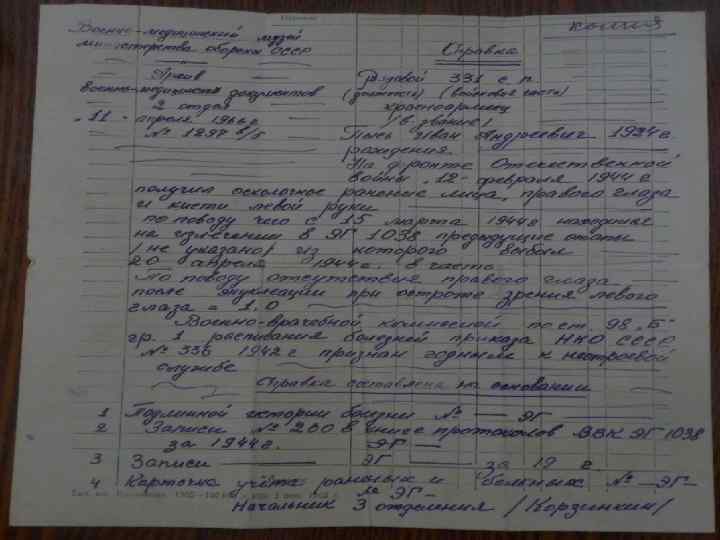 копия
Военно-медицинский музей
министерства обороны СССР
Справка
Архив
военно-медицинских документов
2 отдел
"11" апреля 1966 г.
№ 1297 в/5
Рядовой 331 с.п.
(должность) (войсковая часть)
красноармеец
(в звание)
Пысь Иван Андреевич 1924 г.
рождения.
На фронте Отечественной
войны "12" февраля 1944 г
получил осколочное ранение лица, правого глаза
и кисти левой руки
по поводу чего с 15 марта 1944 г находился
на излечении в ЭГ 1038 предыдущие этапы
/не указано/ из которого выбыл
20 апреля 1944 г. в часть
По поводу отсутствия правого глаза
после энуклеации при остроте зрения левого
глаза = 1,0
Военно-врачебной комиссией по ст. 98 "Б"
гр. 1 расписания болезней приказа НКО СССР
№ 336 1942 г признан годным к нестроевой
службе
Справка составлена на основании
1 Подлинной истории болезни № — ЭГ —
2 Записи № 260 в книге протоколов ВВК ЭГ 1038
за 1944 г. ЭГ —
3 Записи — ЭГ — за 19 г
4 Карточка учёта раненых и больных № — ЭГ —
№ ЭГ —
Начальник 3 отделения /Корзинкин/